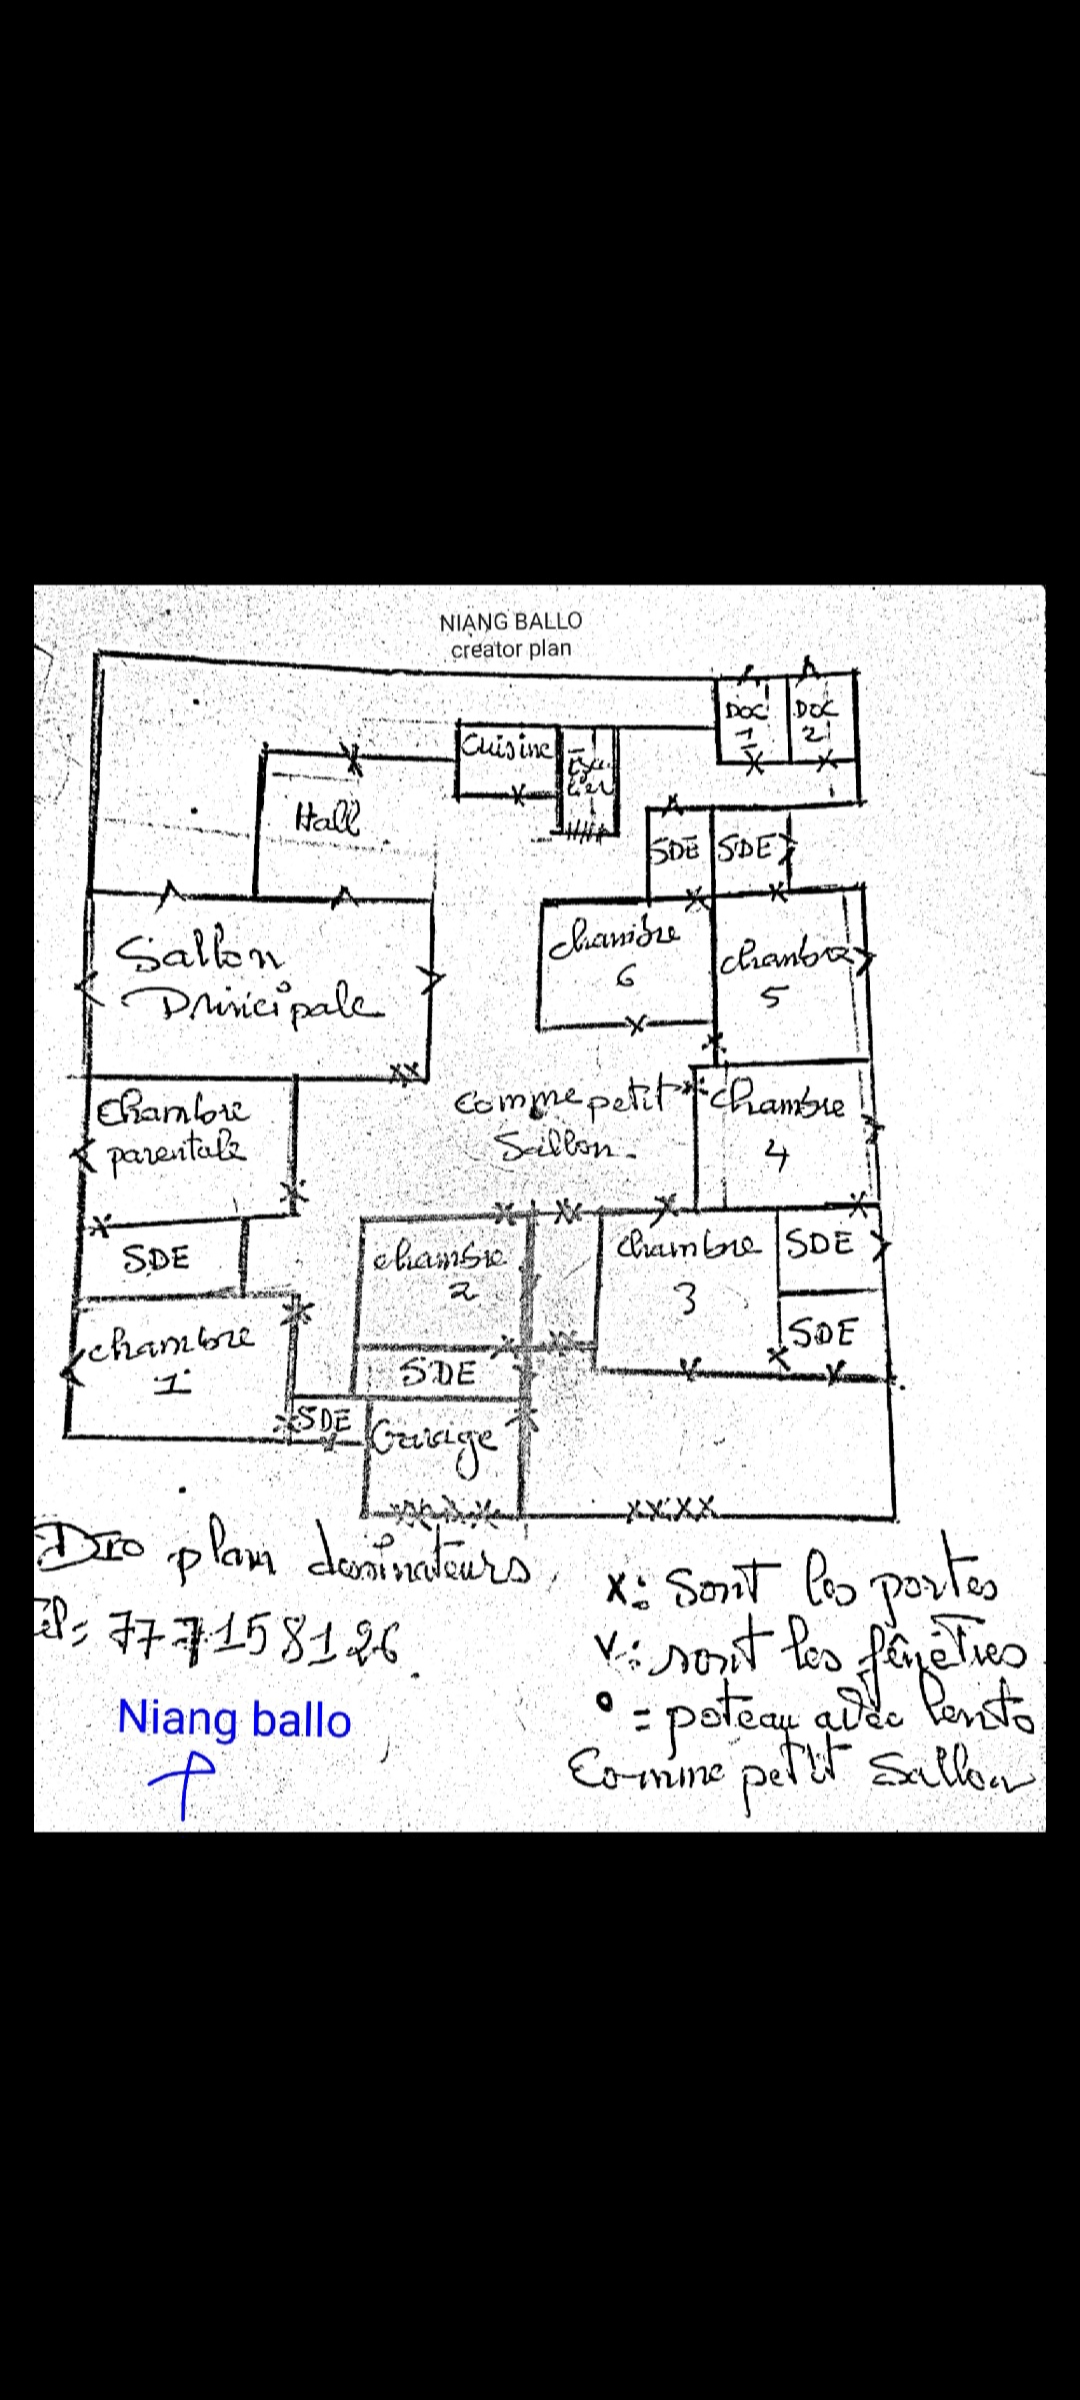 NIANG BALLO
creator plan
DOC 1
DOC 2
Cuisine
Hall
SDE
SDE
Sallon
Principale
chambre
6
chambre
5
Chambre
parentale
comme petit
Sallon.
chambre
4
SDE
chambre
2
chambre
3
SDE
SDE
chambre
1
SDE
SDE
Garage
plan dessinateurs
Tél= 777158126
Niang ballo
x: sont les portes
v: sont les fenêtres
° = poteau avec
Comme petit Sallon